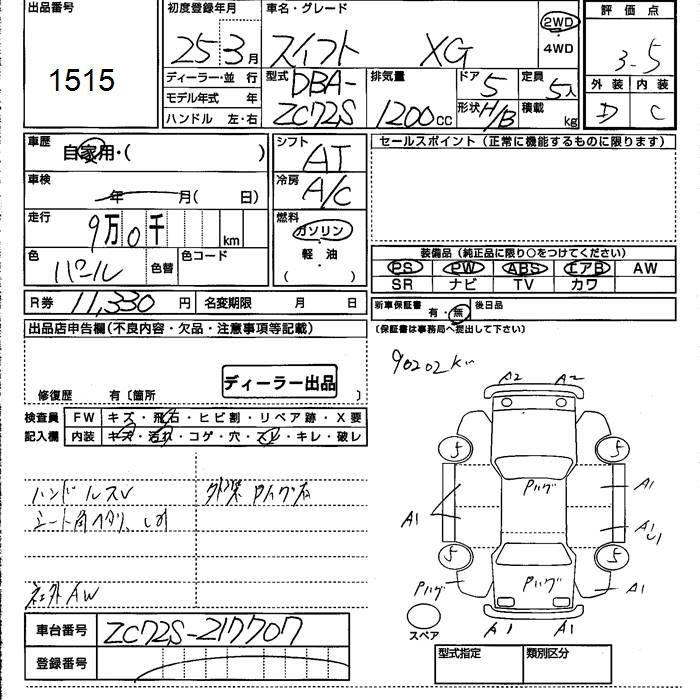 出品番号
1515
初度登録年月
25 3月
車名・グレード
スイフト XG
2WD
・
4WD
評価点
3.5
外装 内装
D C
ディーラー・並行
モデル年式 年
ハンドル 左・右
型式
DBA-
ZC72S
排気量
1200cc
ドア 5
形状 H/B
定員 5人
積載 kg
車歴
自家用・( )
車検
年 月( 日)
走行
9万0千 km
色
パール
色替
色コード
シフト
AT
冷房
A/C
燃料
ガソリン
・
軽・油
( )
セールスポイント(正常に機能するものに限ります)
装備品(純正品に限り○をつけてください)
PS PW ABS エアB AW
SR ナビ TV カワ
R券 11,330円 名変期限 月 日
新車保証書 有・無 後日品
(保証書は事務局へ提出して下さい)
出品店申告欄(不良内容・欠品・注意事項等記載)
ディーラー出品
修復歴 有〔箇所 〕
90202km
検査員 FW キズ・飛石・ヒビ割・リペア跡・X要
記入欄 内装 キズ・汚れ・コゲ・穴・スレ・キレ・破レ
ハンドルスレ
シート角ヘタリ、
社外AW
A2 A2
5 5
Pハゲ
A1 A1
A1
5 5
Pハゲ Pハゲ A1
A1 A1
スペア
車台番号 ZC72S-217707
登録番号
型式指定 類別区分